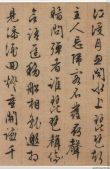 江浸月忽聞水上琵琶聲
主人忘歸客不發尋聲
暗問彈者誰琵琶聲停
欲語遲移船相近邀相
見添酒回燈重開宴千